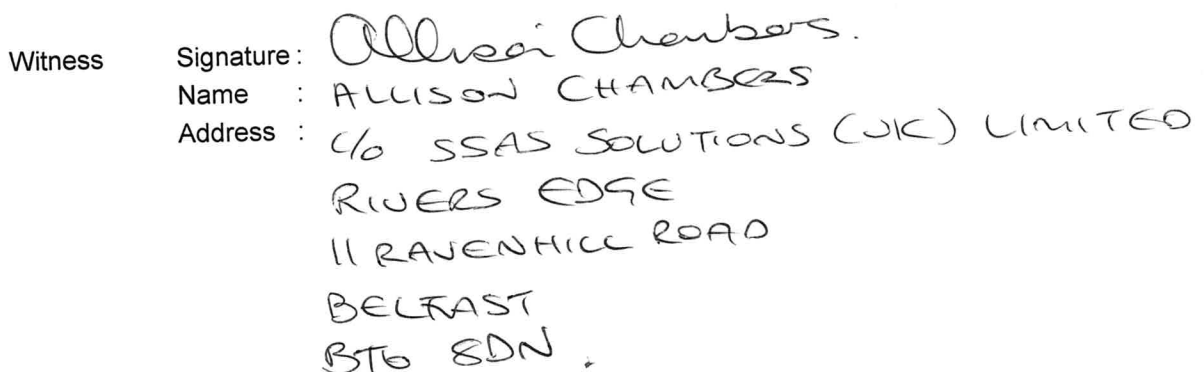 Witness Signature: Allison Chambers.
Name : ALLISON CHAMBERS
Address : c/o SSAS SOLUTIONS (UK) LIMITED
RIVERS EDGE
11 RAVENHILL ROAD
BELFAST
BT6 8DN.